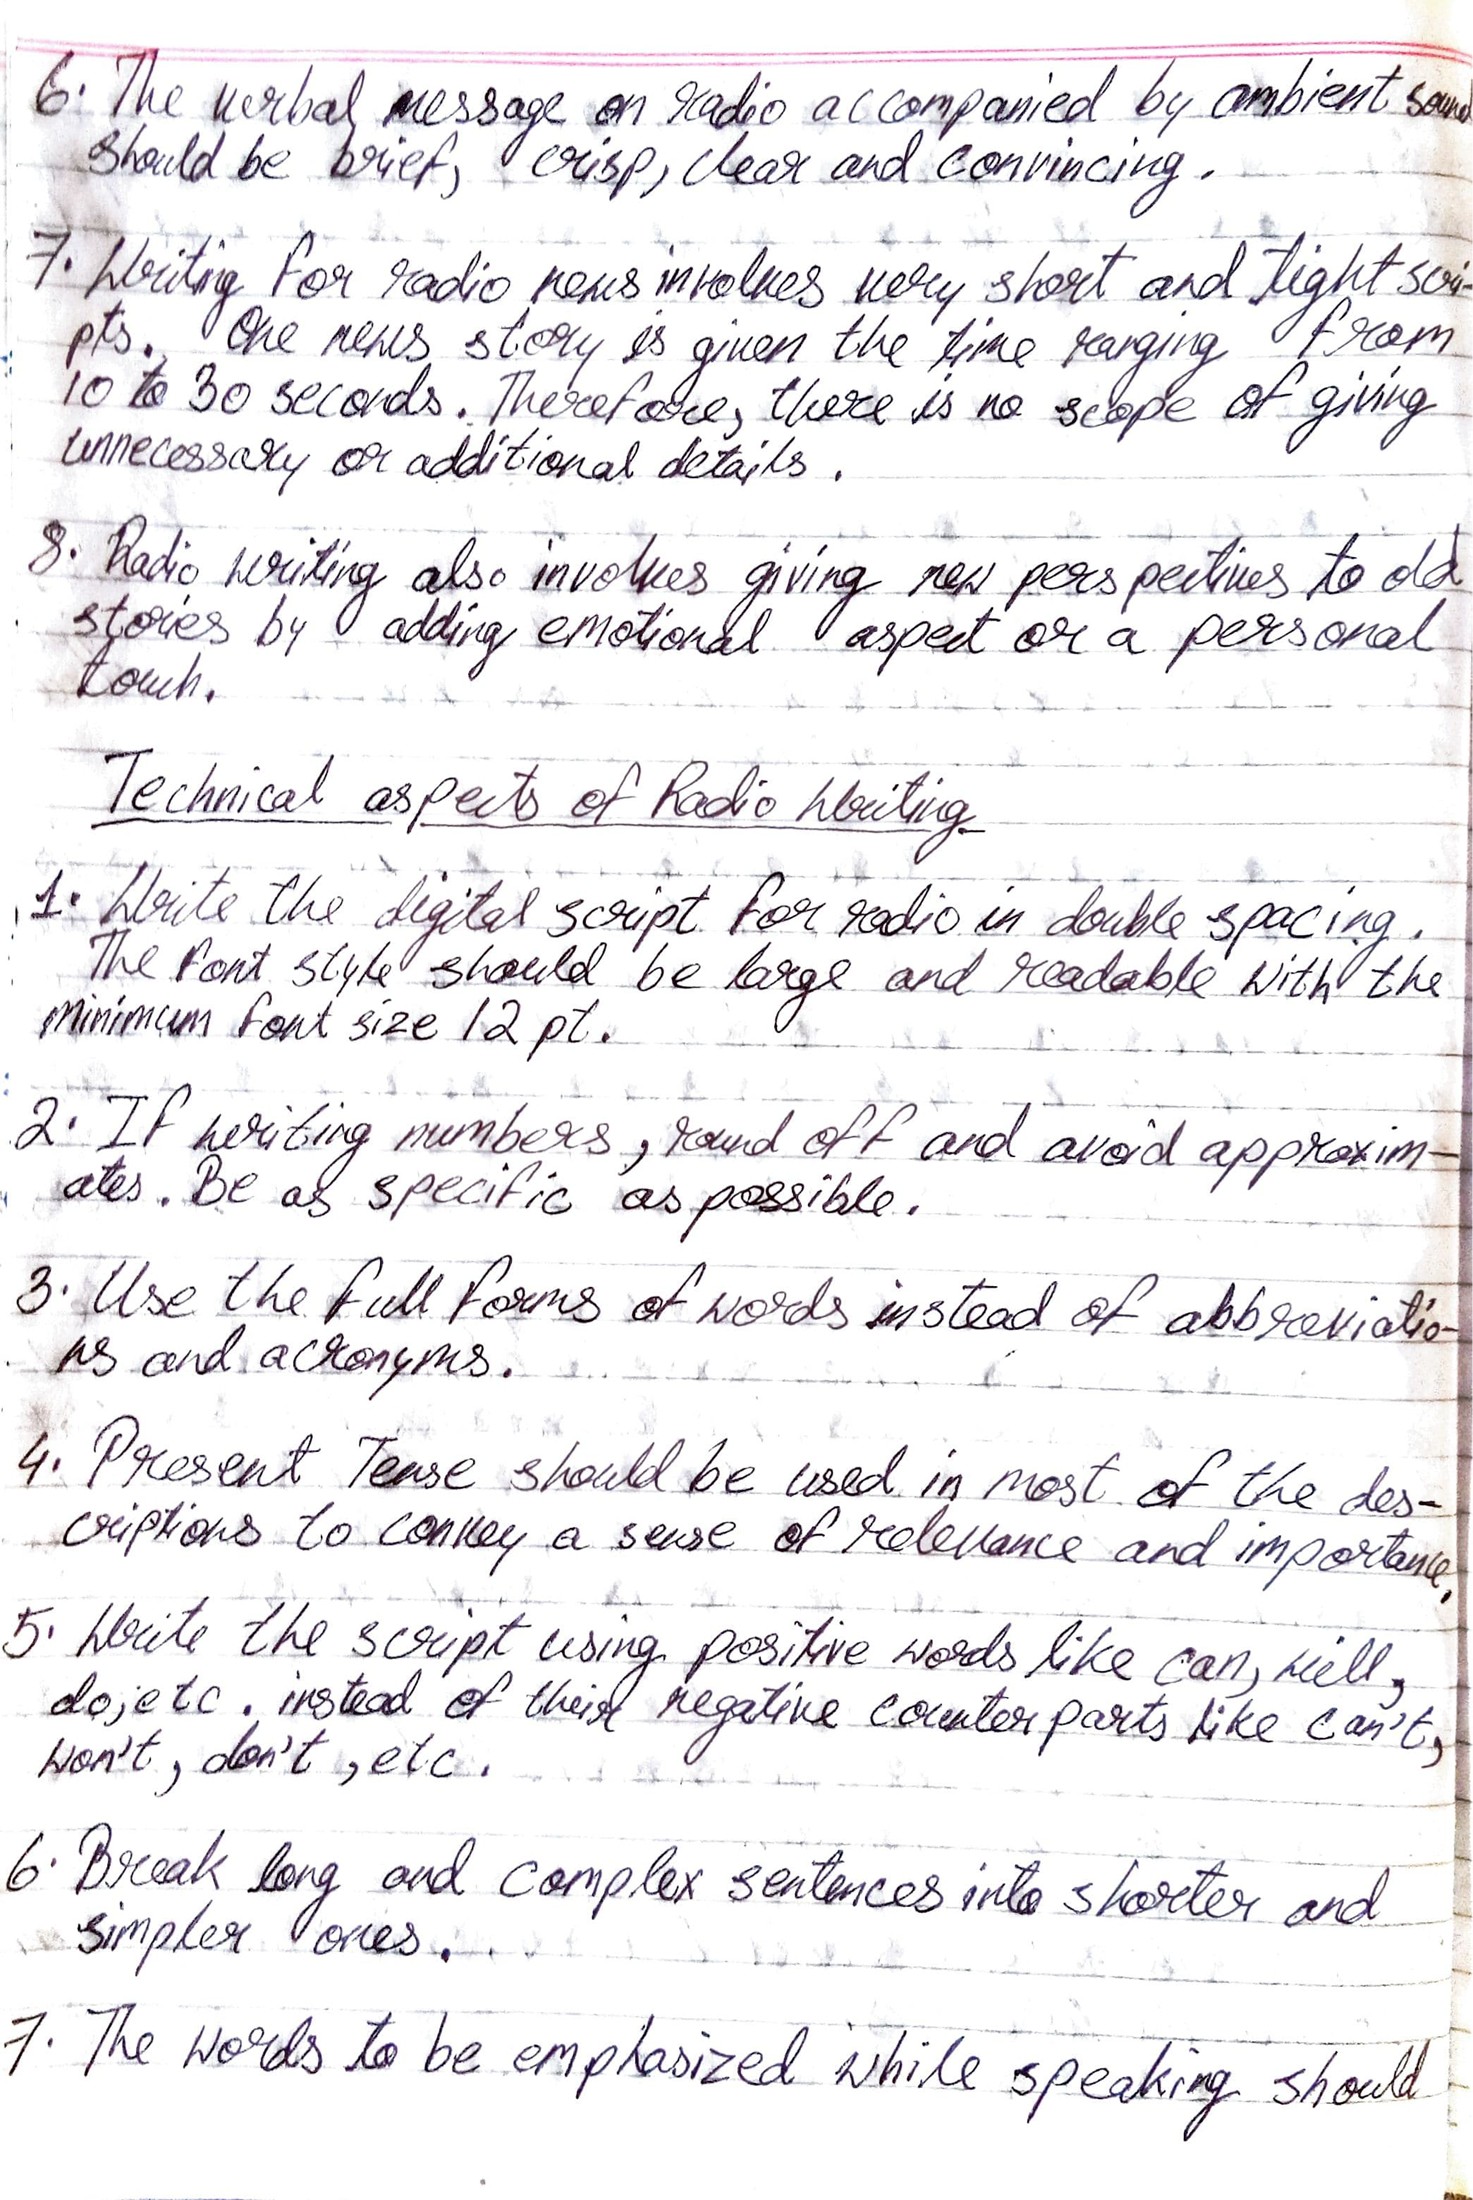 6. The verbal message on radio accompanied by ambient sound
should be brief, crisp, clear and convincing.
7. Writing for radio news involves very short and tight scri-
pts. One news story is given the time ranging from
10 to 30 seconds. Therefore, there is no scope of giving
unnecessary or additional details.
8. Radio writing also involves giving new perspectives to old
stories by adding emotional aspect or a personal
touch.
Technical aspects of Radio Writing
1. Write the digital script for radio in double spacing.
The font style should be large and readable with the
minimum font size 12 pt.
2. If writing numbers, round off and avoid approxim-
ates. Be as specific as possible.
3. Use the full forms of words instead of abbreviatio-
ns and acronyms.
4. Present Tense should be used in most of the des-
criptions to convey a sense of relevance and importance.
5. Write the script using positive words like can, will,
do, etc. instead of their negative counterparts like can't,
won't, don't, etc.
6. Break long and complex sentences into shorter and
simpler ones.
7. The words to be emphasized while speaking should